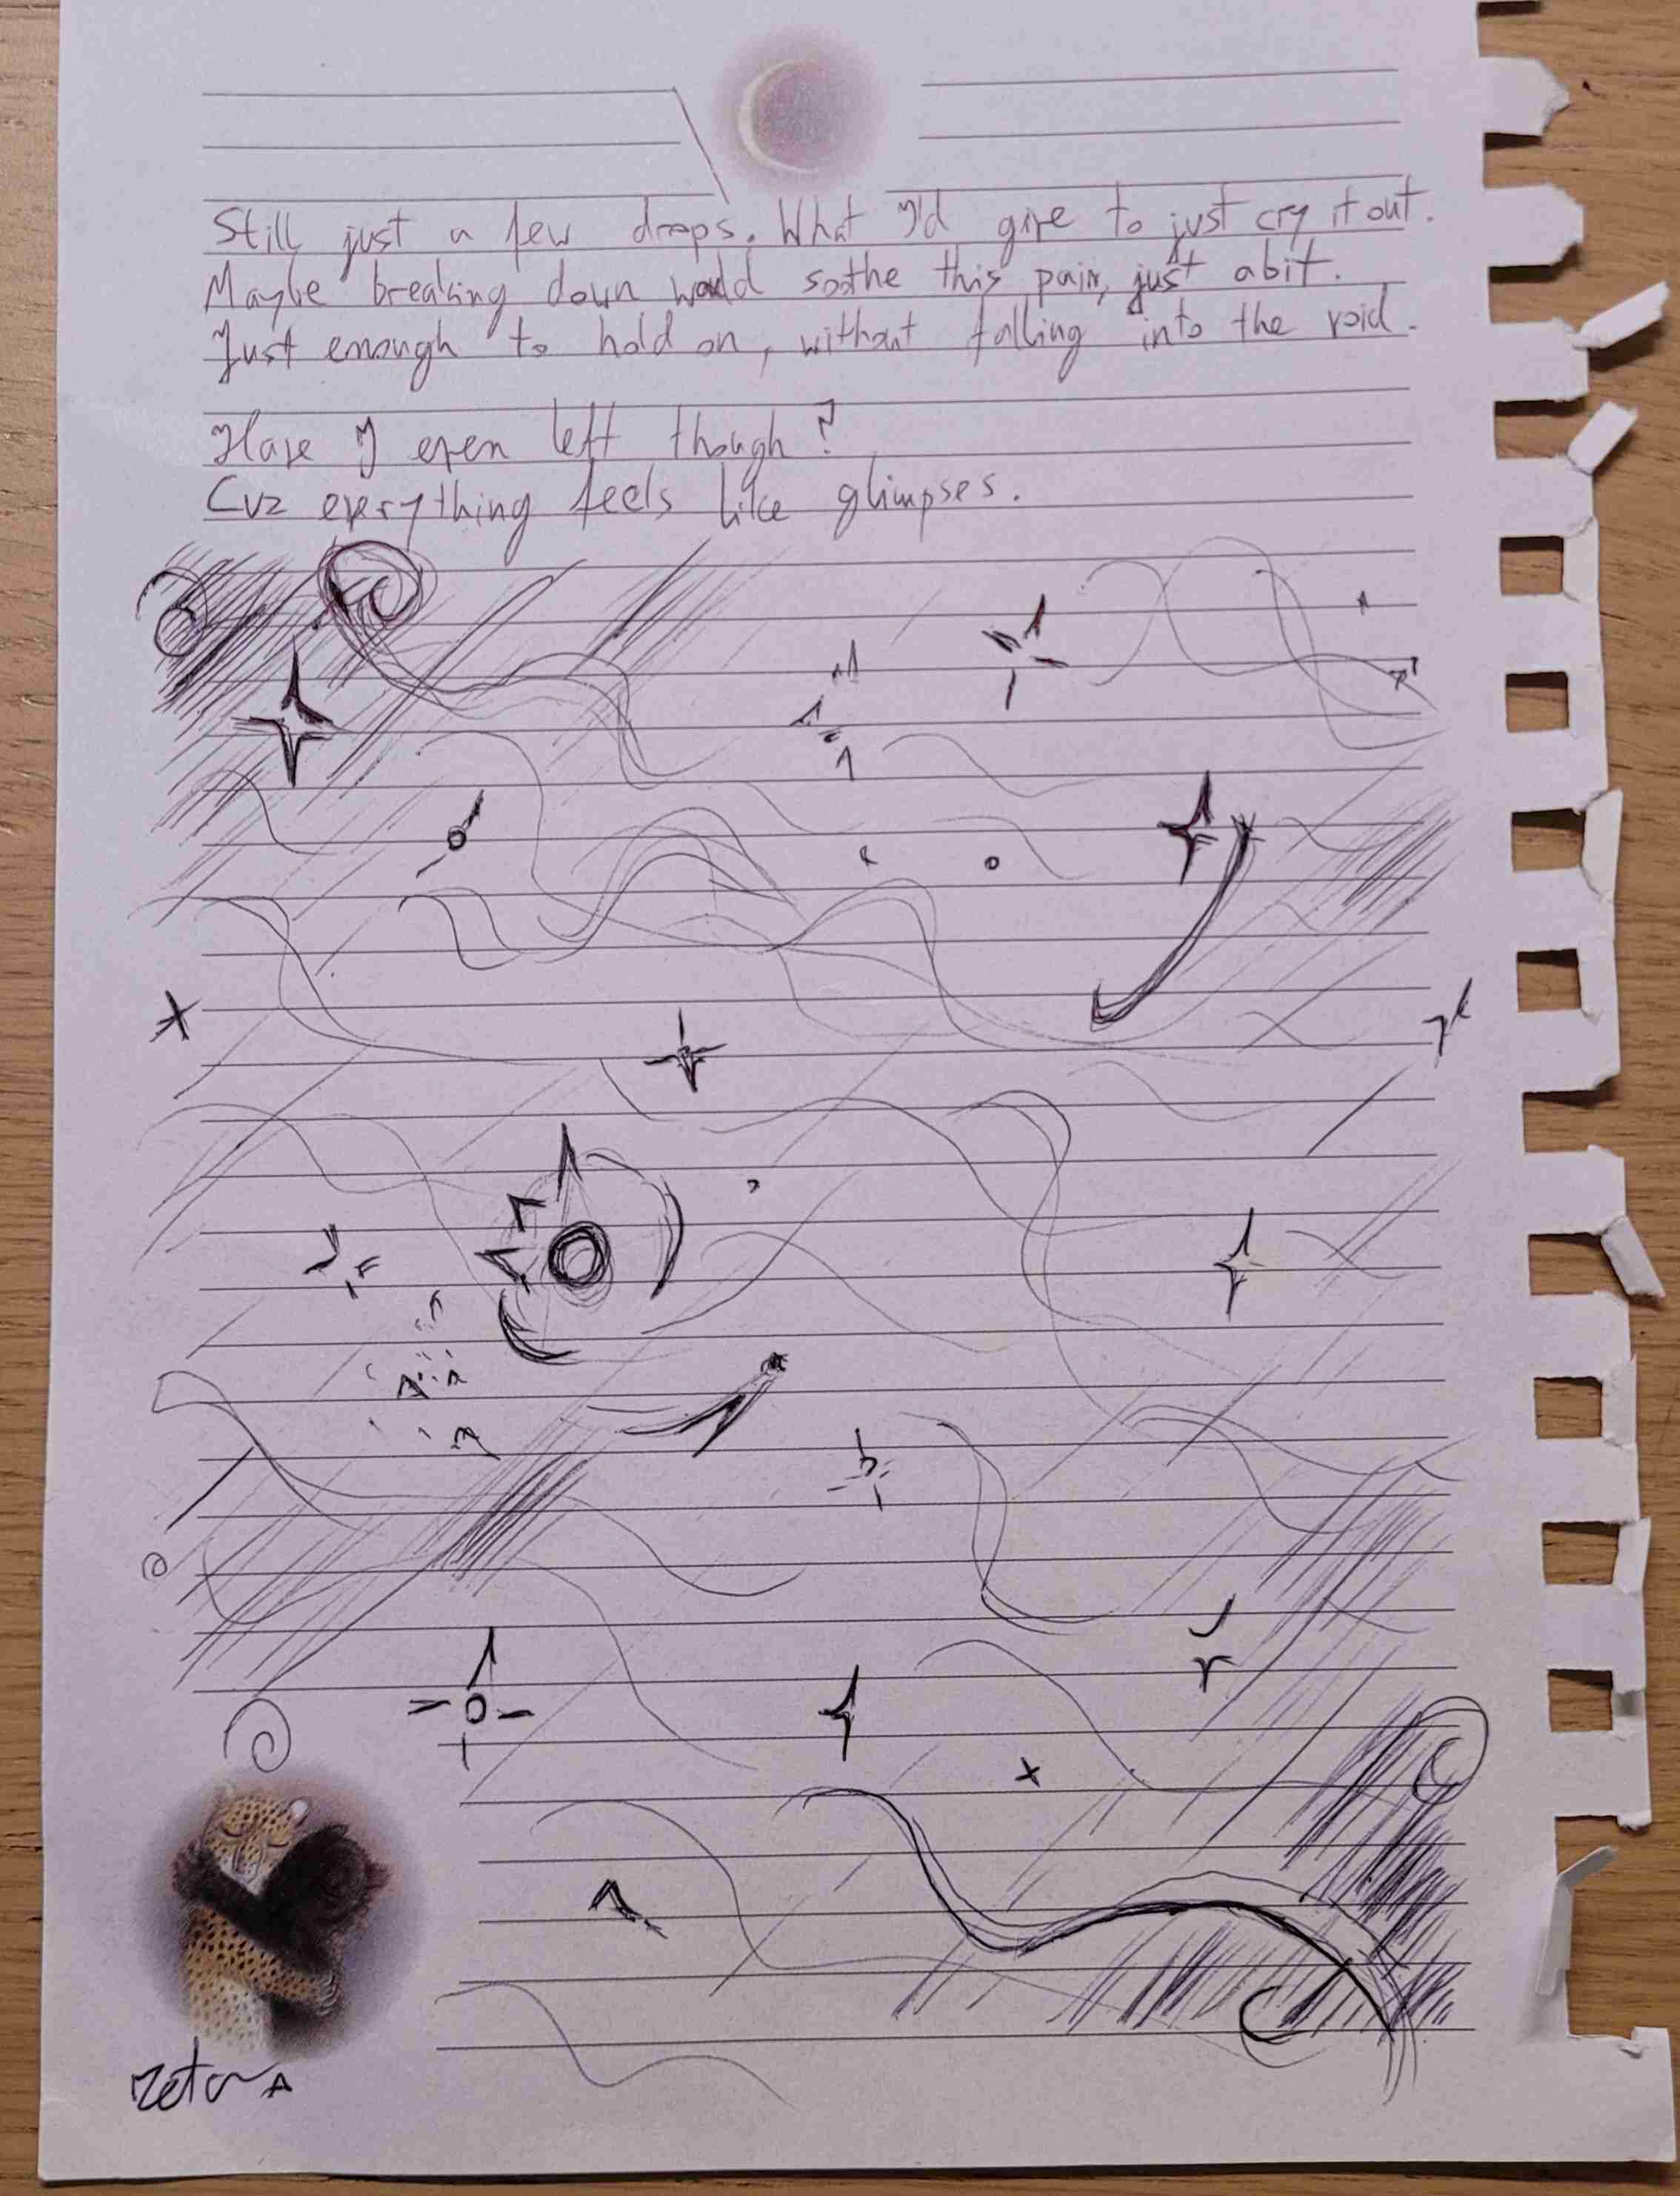 Still just a few drops. What I'd give to just cry it out.
Maybe breaking down would soothe this pain, just a bit.
Just enough to hold on, without falling into the void.
Have I even left though?
Cuz everything feels like glimpses.